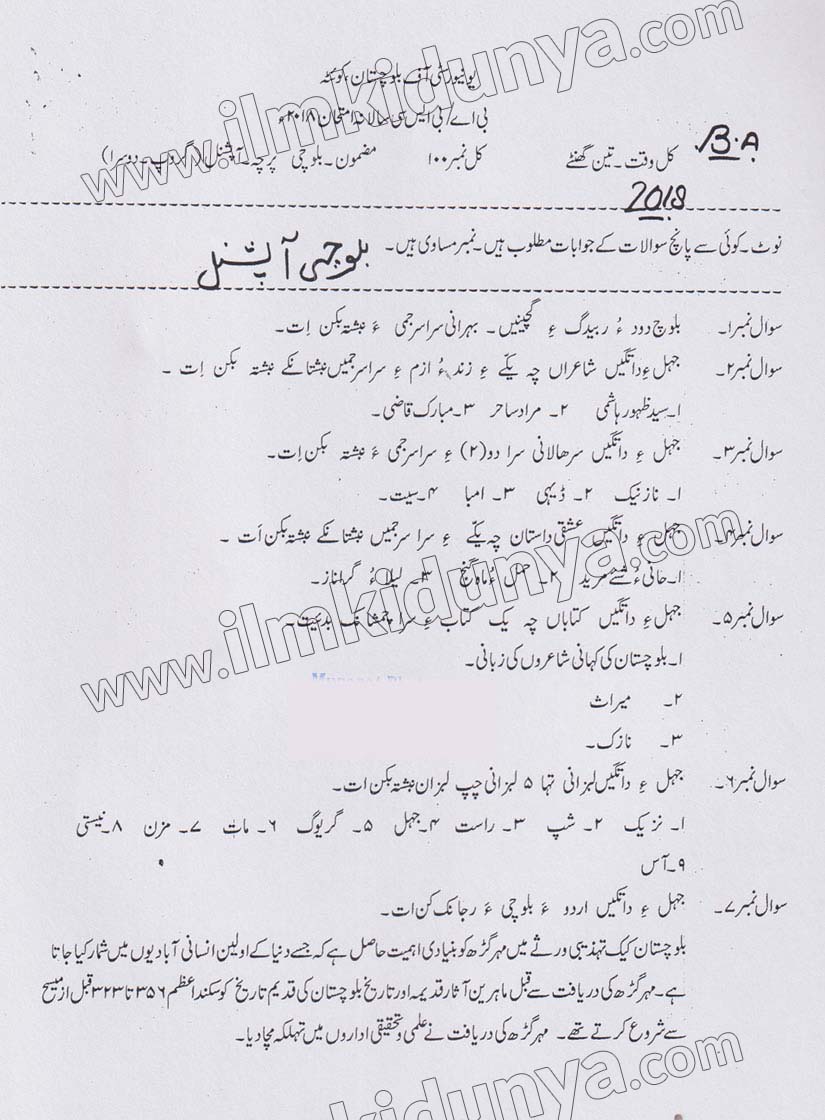 www.ilmkidunya.com
یونیورسٹی آف بلوچستان، کوئٹہ
بی اے/بی ایس سی سالانہ امتحان ۲۰۱۸ء
B.A
کل وقت۔ تین گھنٹے کل نمبر ۱۰۰ مضمون۔ بلوچی پرچہ۔ آپشنل (گروپ۔ دوسرا)
2018
نوٹ۔ کوئی سے پانچ سوالات کے جوابات مطلوب ہیں۔ نمبر مساوی ہیں۔ بلوچی آپشنل
سوال نمبر ۱۔ بلوچ دود ءُ ربیدگ ءِ گچینیں۔ بہرانی سراسرجمی ءَ نبشتہ بکن اِت۔
سوال نمبر ۲۔ جہل ءِ داتگیں شاعراں چہ یکے ءِ زند ءُ ازم ءِ سراسرجمیں نبشتانکے نبشتہ بکن اِت ۔
۱۔ سید ظہور ہاشمی ۲۔ مراد ساحر ۳۔ مبارک قاضی۔
سوال نمبر ۳۔ جہل ءِ داتگیں سرھالانی سرا دو (۲) ءِ سراسرجمی ءَ نبشتہ بکن اِت۔
۱۔ نازنیک ۲۔ ڈیہی ۳۔ امبا ۴۔ سیت۔
سوال نمبر ۴۔ جہل ءِ داتگیں عشقی داستان چہ یکے ءِ سرا سرجمیں نبشتانکے نبشتہ بکن اَت ۔
۱۔ حانی ءُ شے مرید ۲۔ حمل ءُ ماہ گنج ۳۔ لیلا ءُ گراناز۔
سوال نمبر ۵۔ جہل ءِ داتگیں کتاباں چہ یک کتاب ءِ سرا چمشانک بدئیت۔
۱۔ بلوچستان کی کہانی شاعروں کی زبانی۔
۲۔ میراث
۳۔ نازک۔
سوال نمبر ۶۔ جہل ءِ داتگیں لبزانی تہا ۵ لبزانی چپ لبزان نبشتہ بکن ات۔
۱۔ نزیک ۲۔ شپ ۳۔ راست ۴۔ جہل ۵۔ گریوگ ۶۔ مات ۷۔ مزن ۸۔ نیستی
۹۔ آس
سوال نمبر ۷۔ جہل ءِ داتگیں اردو ءَ بلوچی ءَ رجانک کن ات۔
بلوچستان کیک تہذیبی ورثے میں مہر گڑھ کو بنیادی اہمیت حاصل ہے کہ جسے دنیا کے اولین انسانی آبادیوں میں شمار کیا جاتا
ہے۔ مہر گڑھ کی دریافت سے قبل ماہرین آثار قدیمہ اور تاریخ بلوچستان کی قدیم تاریخ کو سکندر اعظم ۳۵۶ تا ۳۲۳ قبل از مسیح
سے شروع کرتے تھے۔ مہر گڑھ کی دریافت نے علمی و تحقیقی اداروں میں تہلکہ مچا دیا۔